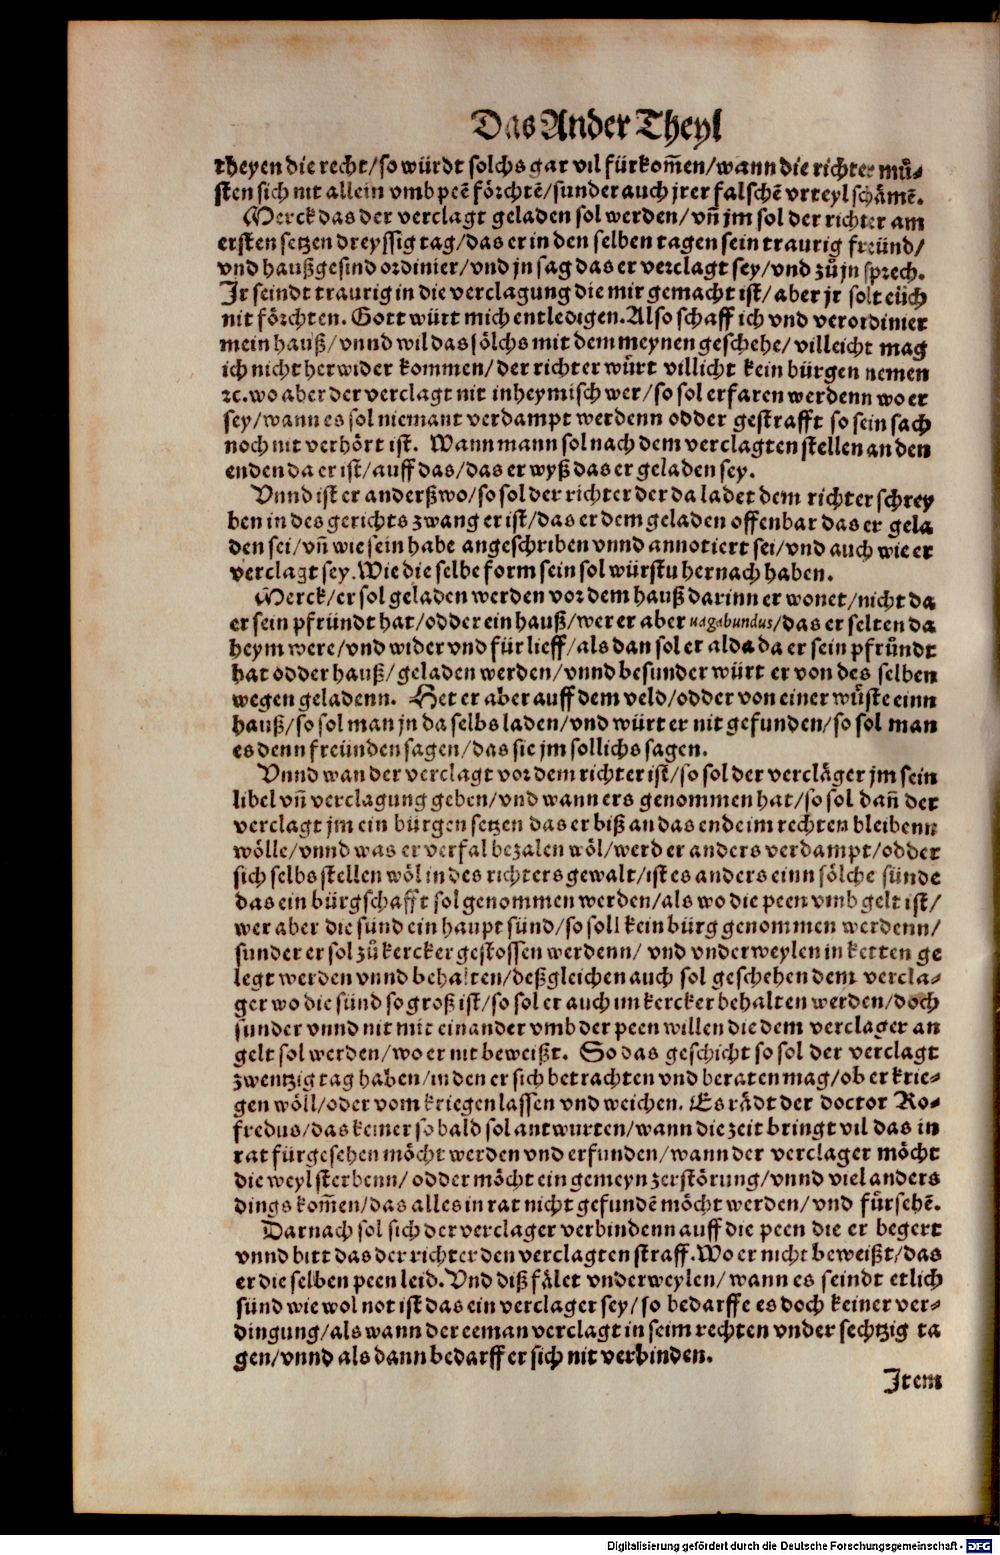 Das Ander Theyl
theyen die recht/so würdt solchs gar vil fürkom̄en/wann die richter mů-
sten sich nit allein vmb peē förchtē/sunder auch jrer falschē vrteyl schämē.
Merck das der verclagt geladen sol werden/vn̄ jm sol der richter am
ersten setzen dreyssig tag/das er in den selben tagen sein traurig freünd/
vnd haußgesind ordinier/vnd jn sag das er verclagt sey/vnd zů jn sprech.
Jr seindt traurig in die verclagung die mir gemacht ist/aber jr solt eüch
nit förchten. Gott würt mich entledigen. Also schaff ich vnd verordinier
mein hauß/vnnd wil das sölchs mit dem meynen geschehe/villeicht mag
ich nicht herwider kommen/der richter würt villicht kein bürgen nemen
ꝛc. wo aber der verclagt nit inheymisch wer/so sol erfaren werdenn wo er
sey/wann es sol niemant verdampt werdenn odder gestrafft so sein sach
noch nit verhört ist. Wann mann sol nach dem verclagten stellen an den
enden da er ist/auff das/das er wyß das er geladen sey.
Vnnd ist er anderßwo/so sol der richter der da ladet dem richter schrey
ben in des gerichts zwang er ist/das er dem geladen offenbar das er gela
den sei/vn̄ wie sein habe angeschriben vnnd annotiert sei/vnd auch wie er
verclagt sey. Wie die selbe form sein sol würstu hernach haben.
Merck/er sol geladen werden vor dem hauß darinn er wonet/nicht da
er sein pfründt hat/odder ein hauß/wer er aber vagabundus/das er selten da
heym were/vnd wider vnd für lieff/als dan sol er alda da er sein pfründt
hat odder hauß/geladen werden/vnnd besunder würt er von des selben
wegen geladenn. Het er aber auff dem veld/odder von einer wůste einn
hauß/so sol man jn daselbs laden/vnd würt er nit gefunden/so sol man
es denn freünden sagen/das sie jm sollichs sagen.
Vnnd wan der verclagt vor dem richter ist/so sol der verclåger jm sein
libel vn̄ verclagung geben/vnd wann ers genommen hat/so sol dan̄ der
verclagt jm ein bürgen setzen das er biß an das ende im rechten bleibenn
wölle/vnnd was er verfal bezalen wöl/werd er anders verdampt/odder
sich selbs stellen wöl in des richters gewalt/ist es anders einn sölche sünde
das ein bürgschafft sol genommen werden/als wo die peen vmb gelt ist/
wer aber die sünd ein haupt sünd/so soll kein bürg genommen werdenn/
sunder er sol zů kercker gestossen werdenn/ vnd vnderweylen in ketten ge
legt werden vnnd behalten/deßgleichen auch sol geschehen dem vercla-
ger wo die sünd so groß ist/so sol er auch im kercker behalten werden/doch
sunder vnnd nit mit einander vmb der peen willen die dem verclager an
gelt sol werden/wo er nit beweißt. So das geschicht so sol der verclagt
zwentzig tag haben/in den er sich betrachten vnd beraten mag/ob er krie-
gen wöll/oder vom kriegen lassen vnd weichen. Es rädt der doctor Ro-
fredus/das keiner so bald sol antwurten/wann die zeit bringt vil das in
rat fürgesehen möcht werden vnd erfunden/wann der verclager möcht
die weyl sterbenn/ odder möcht ein gemeyn zerstörung/vnnd viel anders
dings kom̄en/das alles in rat nicht gefundē möcht werden/vnd fürsehē.
Darnach sol sich der verclager verbindenn auff die peen die er begert
vnnd bitt das der richter den verclagten straff. Wo er nicht beweißt/das
er die selben peen leid. Vnd diß fälet vnderweylen/wann es seindt etlich
sünd wie wol not ist das ein verclager sey/so bedarffe es doch keiner ver-
dingung/als wann der eeman verclagt in seim rechten vnder sechtzig ta
gen/vnnd als dann bedarff er sich nit verbinden.
Item
Digitalisierung gefördert durch die Deutsche Forschungsgemeinschaft - DFG